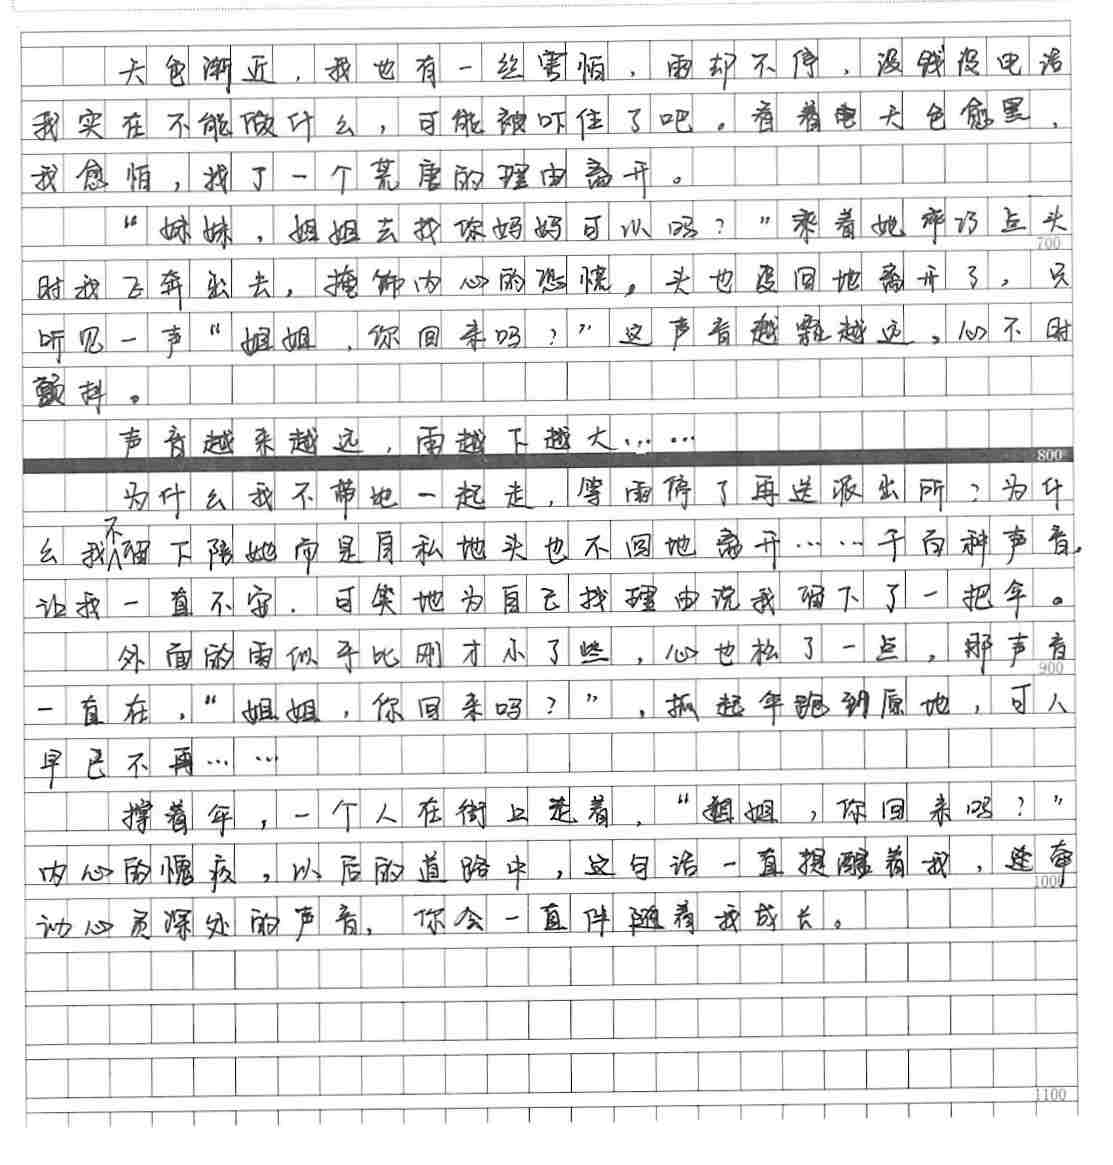 天色渐近，我也有一丝害怕，雨却不停，没钱没电话
我实在不能做什么，可能被吓住了吧。看着天色愈黑，
我愈怕，找了一个荒唐的理由离开。
“妹妹，姐姐去找你妈妈可以吗？”乘着她乖巧点头
700
时我飞奔出去，掩饰内心的恐慌。头也没回地离开了，只
听见一声“姐姐，你回来吗？”这声音越飘越远，心不时
颤抖。
声音越来越远，雨越下越大……
800
为什么我不带她一起走，等雨停了再送派出所？为什
么我不留下陪她而是自私地头也不回地离开……千百种声音，
让我一直不安．可笑地为自己找理由说我留下了一把伞。
外面的雨似乎比刚才小了些，心也松了一点，那声音
900
一直在，“姐姐，你回来吗？”，抓起伞跑到原地，可人
早已不再……
撑着伞，一个人在街上走着，“姐姐，你回来吗？”
内心的愧疚，以后的道路中，这句话一直提醒着我，这牵
1000
动心灵深处的声音，你会一直伴随着我成长。
1100